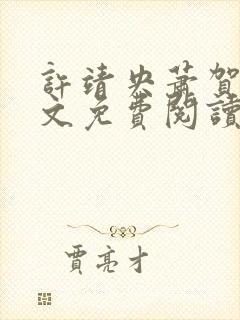 許靖央蕭賀
文免費閱讀
賈亮才